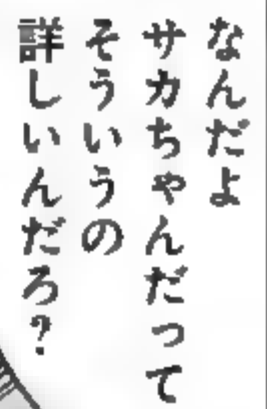 なんだよ
サカちゃんだって
そういうの
詳しいんだろ?